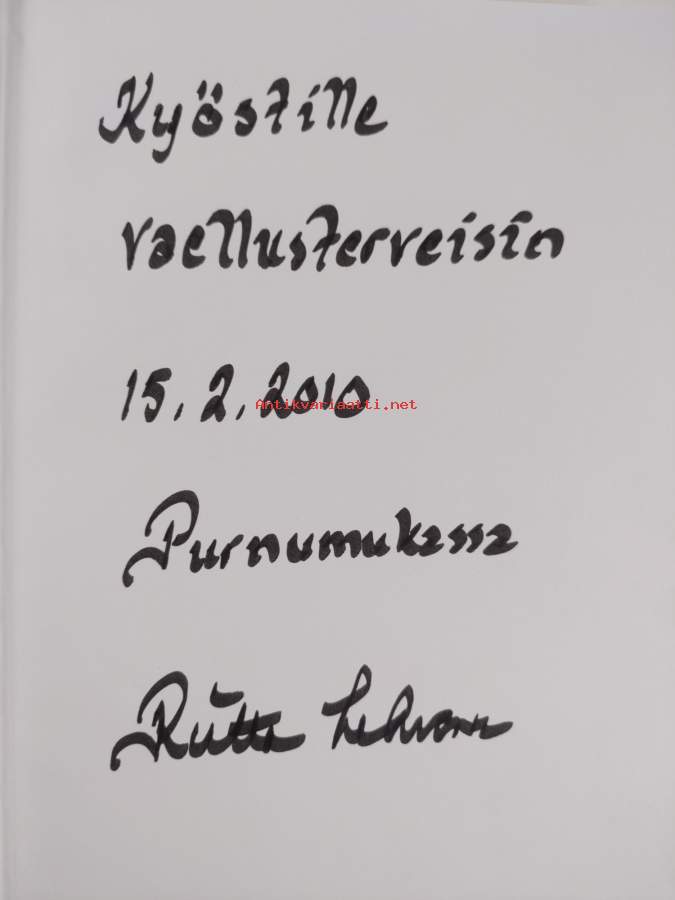 Kyöstille
vaellusterveisin
15.2.2010
Antikvariaatti.net
Purnumukassa
Riitta